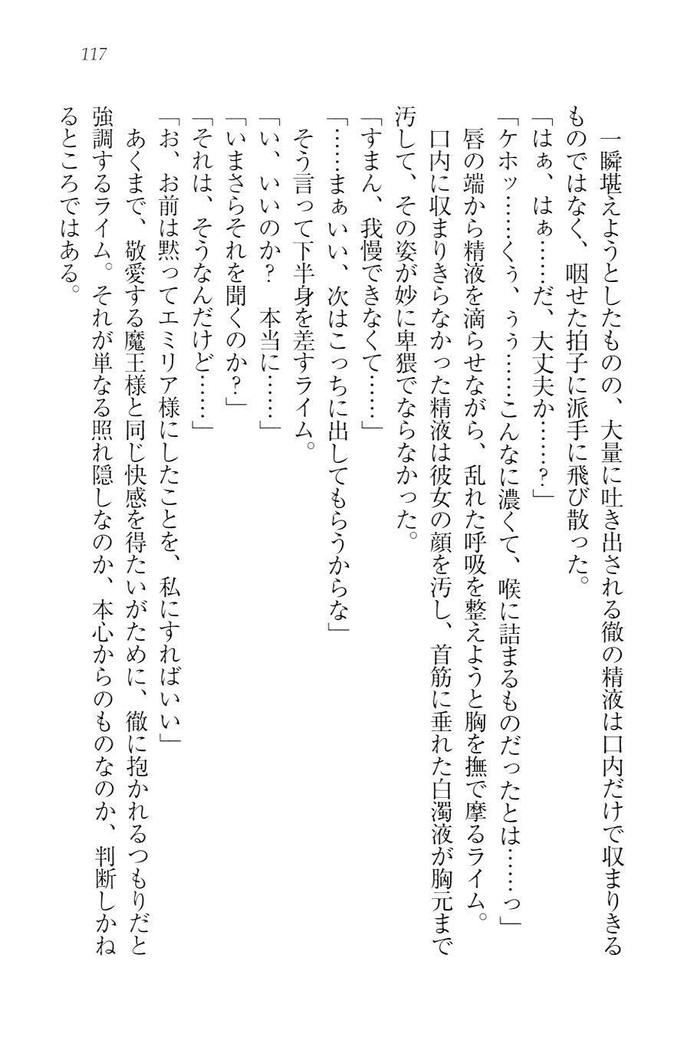 117
一瞬堪えようとしたものの、大量に吐き出される徹の精液は口内だけで収まりきる
ものではなく、咽せた拍子に派手に飛び散った。
「はぁ、はぁ……だ、大丈夫か……?」
「ケホッ……くぅ、ぅぅ……こんなに濃くて、喉に詰まるものだったとは……っ」
唇の端から精液を滴らせながら、乱れた呼吸を整えようと胸を撫で摩るライム。
口内に収まりきらなかった精液は彼女の顔を汚し、首筋に垂れた白濁液が胸元まで
汚して、その姿が妙に卑猥でならなかった。
「すまん、我慢できなくて……」
「……まぁいい、次はこっちに出してもらうからな」
そう言って下半身を差すライム。
「い、いいのか? 本当に……」
「いまさらそれを聞くのか?」
「それは、そうなんだけど……」
「お、お前は黙ってエミリア様にしたことを、私にすればいい」
あくまで、敬愛する魔王様と同じ快感を得たいがために、徹に抱かれるつもりだと
強調するライム。それが単なる照れ隠しなのか、本心からのものなのか、判断しかね
るところではある。